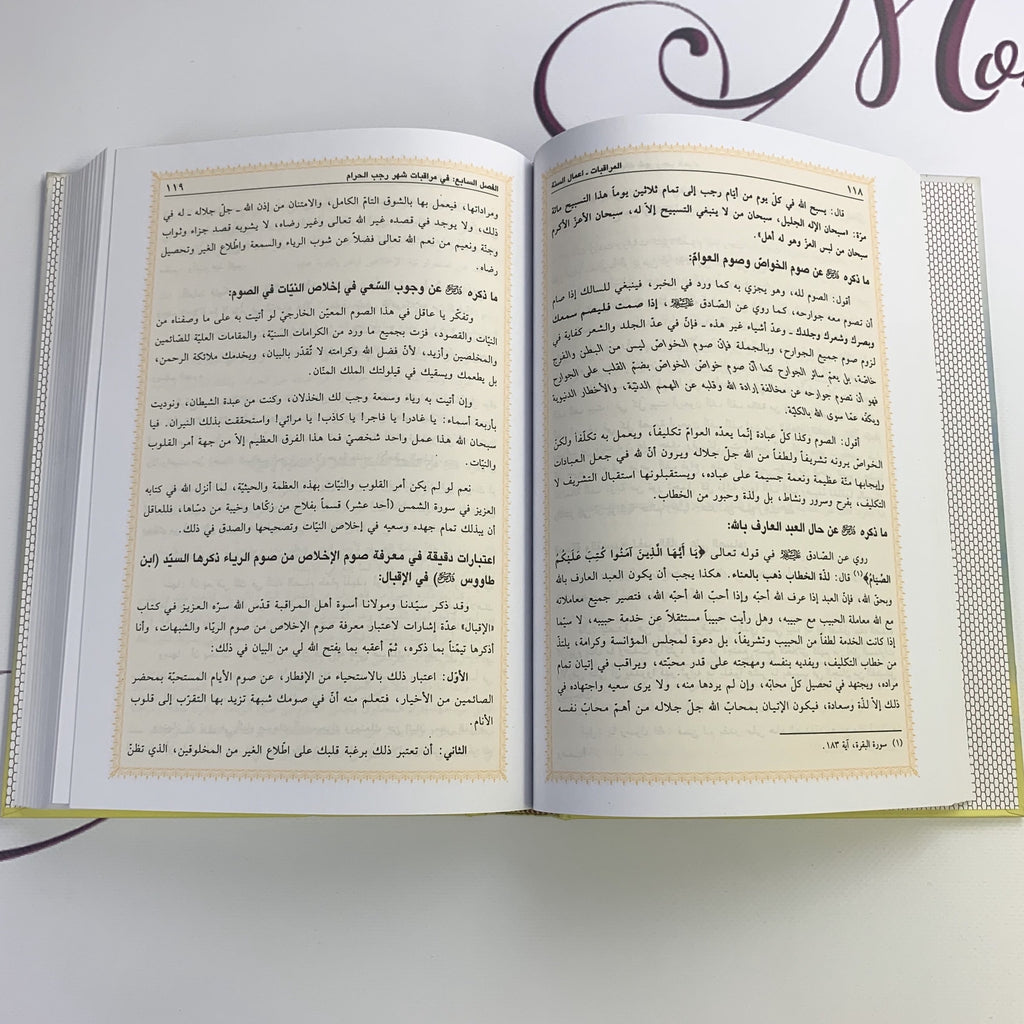 Mo
١١٨
المراقبات ـ اعمال السنة
قال: يسبح الله في كلّ يوم من أيّام رجب إلى تمام ثلاثين يوماً هذا التسبيح مائة
مرّة: «سبحان الإله الجليل، سبحان من لا ينبغي التسبيح إلاّ له، سبحان الأعزّ الأكرم
سبحان من لبس العزّ وهو له أهل».
ما ذكره عن صوم الخواصّ وصوم العوامّ:
أقول: الصوم لله، وهو يجزي به كما ورد في الخبر، فينبغي للسالك إذا صام
أن تصوم معه جوارحه، كما روي عن الصّادق ، إذا صمت فليصم سمعك
وبصرك وشعرك وجلدك ـ وعدّ أشياء غير هذه ـ فإنّ في عدّ الجلد والشعر كفاية في
لزوم صوم جميع الجوارح، وبالجملة فإنّ صوم الخواصّ ليس من البطن والفرج
خاصّة، بل يعمّ سائر الجوارح كما أنّ صوم خواصّ الخواصّ بضمّ القلب على الجوارح
فهو أن تصوم جوارحه عن مخالفة إرادة الله وقلبه عن الهمم الدنيّة، والأخطار الدنيوية
ويكفّه عمّا سوى الله بالكليّة.
أقول: الصوم وكذا كلّ عبادة إنّما يعدّه العوامّ تكليفاً، ويعمل به تكلّفاً ولكنّ
الخواصّ يرونه تشريفاً ولطفاً من الله جلّ جلاله ويرون أنّ لله في جعل العبادات
وإيجابها منّة عظيمة ونعمة جسيمة على عباده، ويستقبلونها استقبال التشريف لا
التكليف، بفرح وسرور ونشاط، بل ولذة وحبور من الخطاب.
ما ذكره عن حال العبد العارف بالله:
روي عن الصّادق في قوله تعالى ﴿يَا أَيُّهَا الَّذِينَ آمَنُوا كُتِبَ عَلَيْكُمُ
الصِّيَامُ﴾(١) قال: لذّة الخطاب ذهب بالعناء. هكذا يجب أن يكون العبد العارف بالله
وبحقّ الله، فإنّ العبد إذا عرف الله أحبّه وإذا أحبّ الله أحبّه الله، فتصير جميع معاملاته
مع الله معاملة الحبيب مع حبيبه، وهل رأيت حبيباً مستثقلاً عن خدمة حبيبه، لا سيّما
إذا كانت الخدمة لطفاً من الحبيب وتشريفاً، بل دعوة لمجلس المؤانسة وكرامة، يلتذّ
من خطاب التكليف، ويفديه بنفسه ومهجته على قدر محبّته، ويراقب في إتيان تمام
مراده، ويجتهد في تحصيل كلّ محابّه، وإن لم يردها منه، ولا يرى سعيه واجتهاده في
ذلك إلاّ لذّة وسعادة، فيكون الإتيان بمحابّ الله جلّ جلاله من أهمّ محابّ نفسه
(١) سورة البقرة، آية ١٨٣.
الفصل السابع: في مراقبات شهر رجب الحرام
١١٩
ومراداتها، فيعمل بها بالشوق التامّ الكامل، والامتنان من إذن الله ـ جلّ جلاله ـ له في
ذلك، ولا يوجد في قصده غير الله تعالى وغير رضاه، لا يشوبه قصد جزاء وثواب
وجنّة ونعيم من نعم الله تعالى فضلاً عن شوب الرياء والسمعة واطّلاع الغير وتحصيل
رضاه.
ما ذكره عن وجوب السّعي في إخلاص النيّات في الصوم:
وتفكّر يا عاقل في هذا الصوم المعيّن الخارجيّ لو أتيت به على ما وصفناه من
النيّات والقصود، فزت بجميع ما ورد من الكرامات السنيّة، والمقامات العليّة للصّائمين
والمخلصين وأزيد، لأنّ فضل الله وكرامته لا تُقدّر بالبيان، ويخدمك ملائكة الرحمن،
بل يطعمك ويسقيك في قيلولتك الملك المنّان.
وإن أتيت به رياء وسمعة وجب لك الخذلان، وكنت من عبدة الشيطان، ونوديت
بأربعة أسماء: يا غادر! يا فاجر! يا كاذب! يا مرائي! واستحققت بذلك النيران. فيا
سبحان الله هذا عمل واحد شخصيّ فما هذا الفرق العظيم إلاّ من جهة أمر القلوب
والنيّات.
نعم لو لم يكن أمر القلوب والنيّات بهذه العظمة والحيثيّة، لما أنزل الله في كتابه
العزيز في سورة الشمس (أحد عشر) قسماً بفلاح من زكّاها وخيبة من دسّاها، فللعاقل
أن يبذلك تمام جهده وسعيه في إخلاص النيّات وتصحيحها والصدق في ذلك.
اعتبارات دقيقة في معرفة صوم الإخلاص من صوم الرياء ذكرها السيّد (ابن
طاووس ) في الإقبال:
وقد ذكر سيّدنا ومولانا أسوة أهل المراقبة قدّس الله سرّه العزيز في كتاب
«الإقبال» عدّة إشارات لاعتبار معرفة صوم الإخلاص من صوم الريّاء والشبهات، وأنا
أذكرها تيمّناً بما ذكره، ثمّ أعقبه بما يفتح الله لي من البيان في ذلك:
الأوّل: اعتبار ذلك بالاستحياء من الإفطار، عن صوم الأيام المستحبّة بمحضر
الصائمين من الأخيار، فتعلم منه أنّ في صومك شبهة تزيد بها التقرّب إلى قلوب
الأنام.
الثاني: أن تعتبر ذلك برغبة قلبك على اطّلاع الغير من المخلوقين، الذي تظنّ